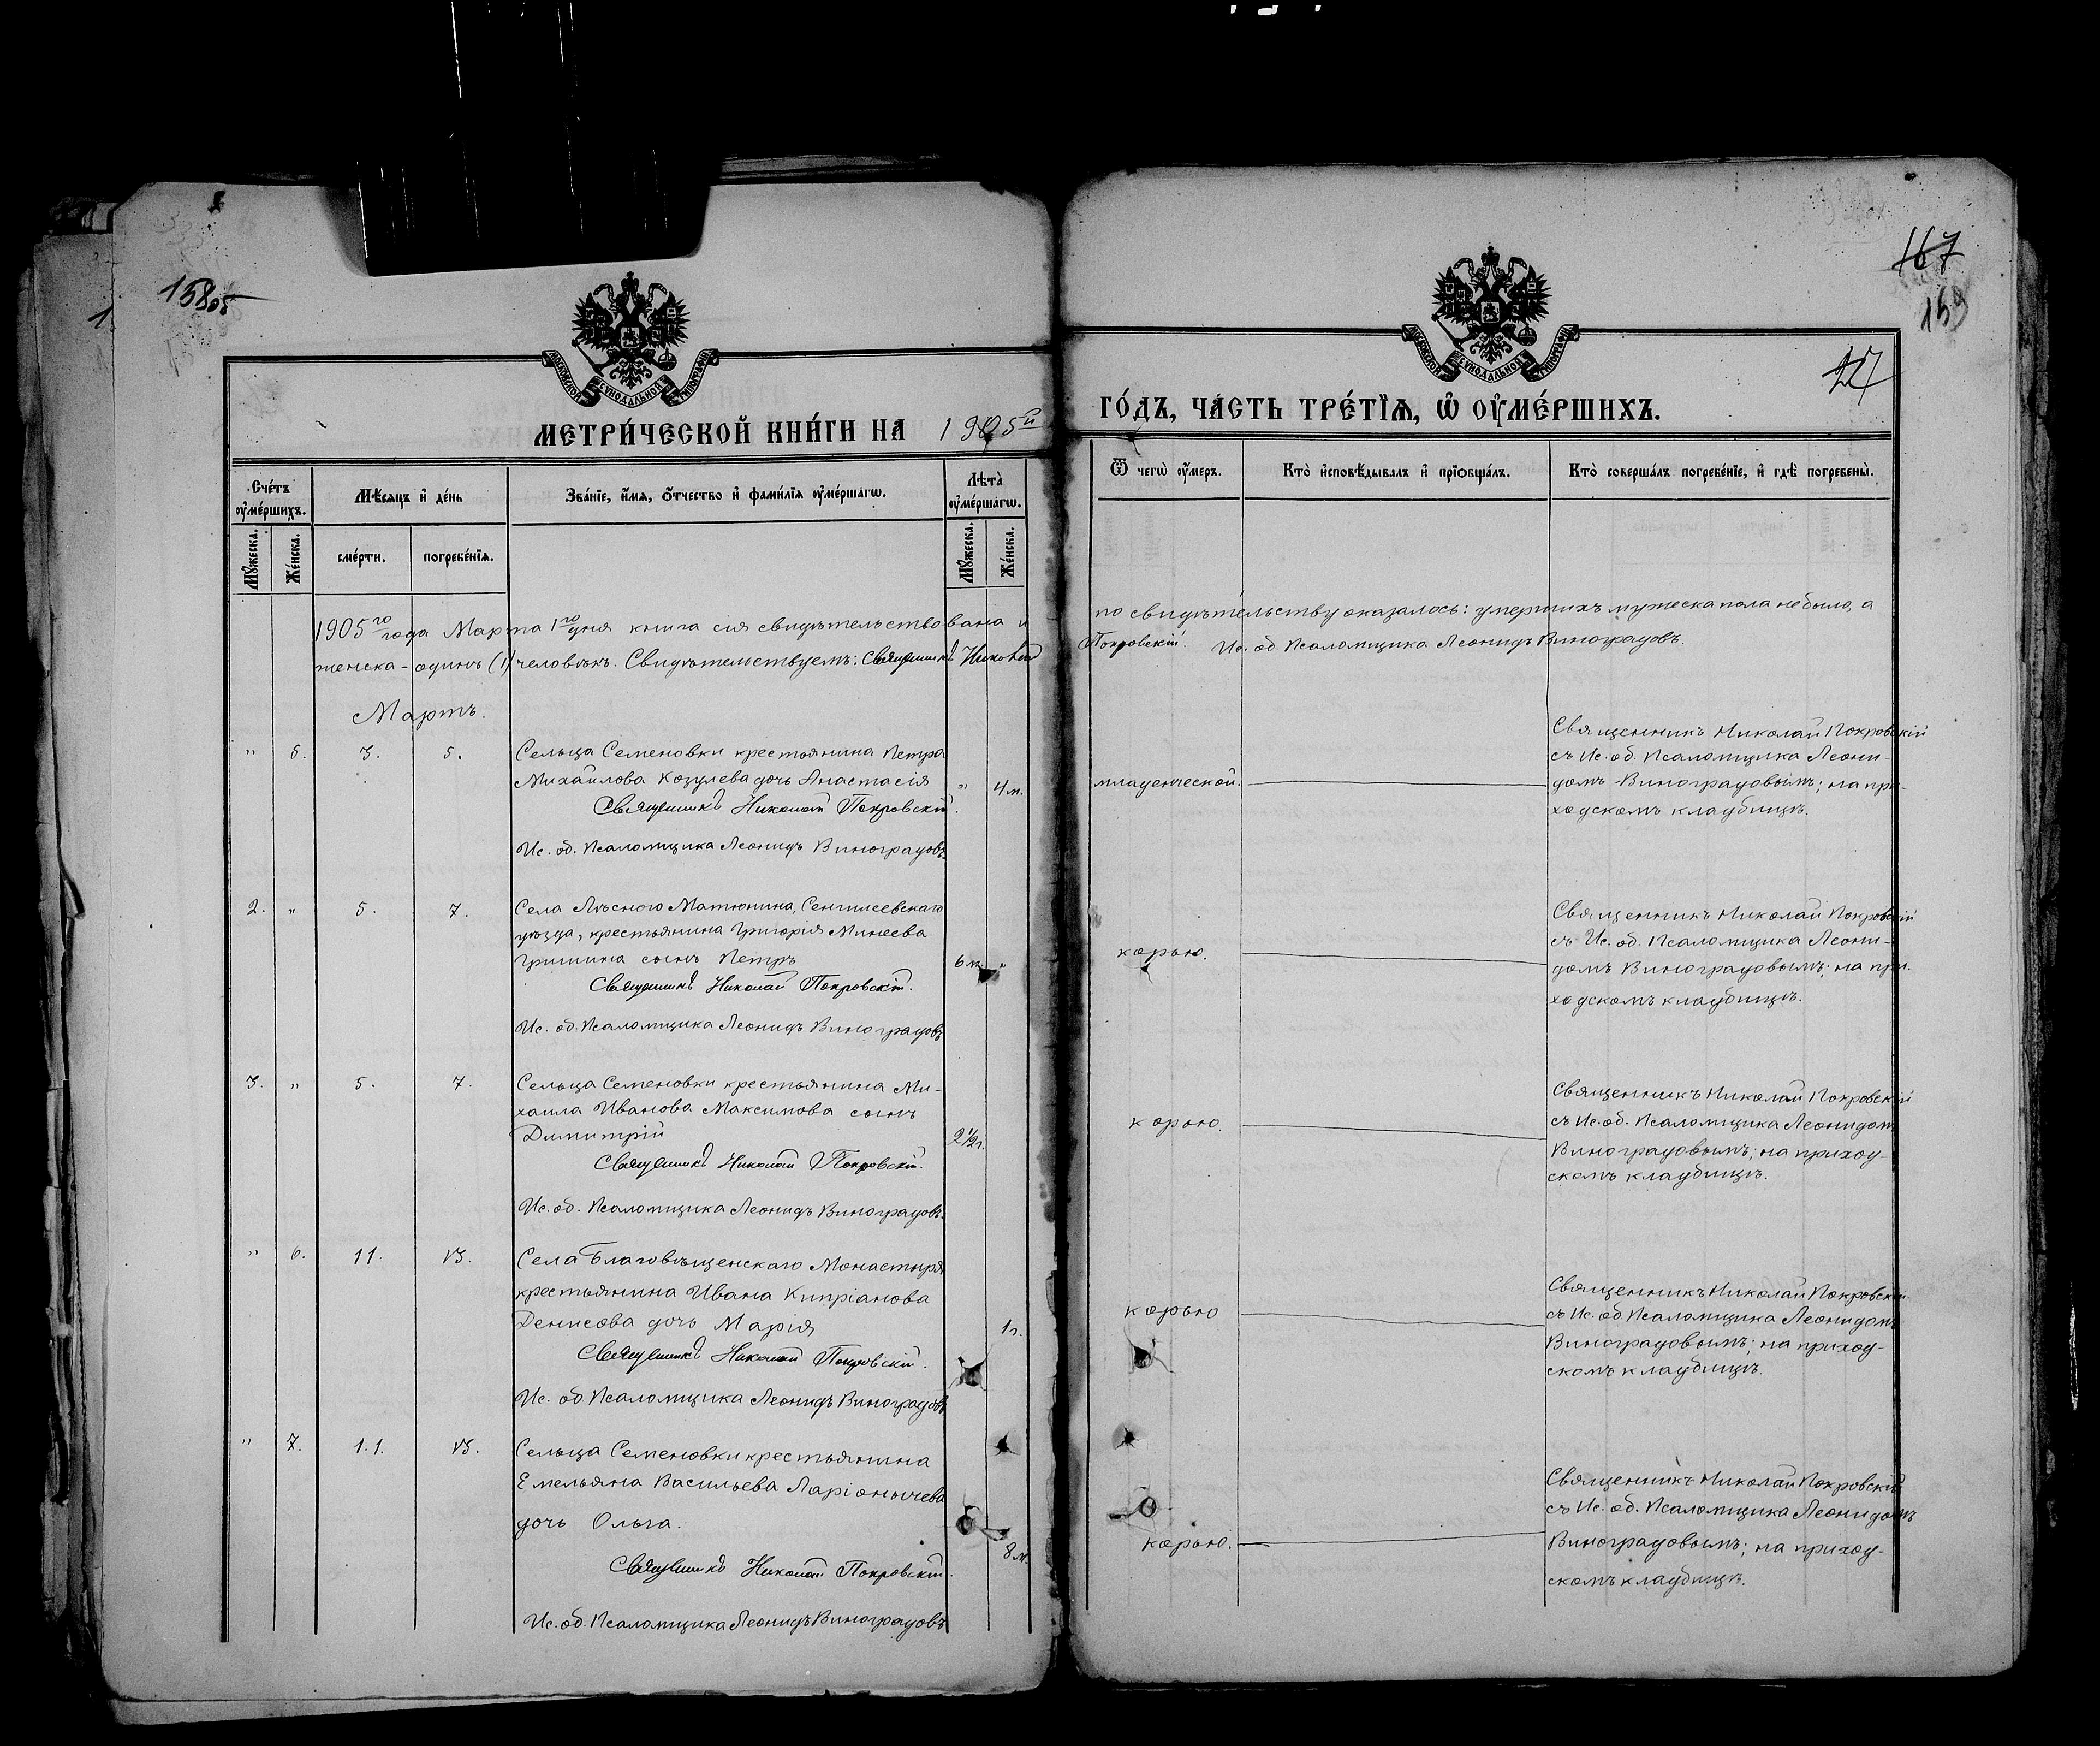 158об
167
159
27
МОСКОВСКОЙ СУНОДАЛЬНОЙ ТИПОГРАФІИ
МОСКОВСКОЙ СУНОДАЛЬНОЙ ТИПОГРАФІИ
МЕТРИ́ЧЕСКОЙ КНИ́ГИ НА 1905й ГО́ДЪ, ЧА́СТЬ ТРЕ́ТЇѦ, Ѡ҆ ОУ҆МЕ́РШИХЪ.
Сче́тъ оу҆ме́ршихъ.
Мꙋ́жеска.
Же́нска.
Мѣ́сяцъ и҆ де́нь
сме́рти.
погребе́нїѧ.
Зва́нїе, и҆́мѧ, ѻ҆́тчество и҆ фами́лїѧ оу҆ме́ршагѡ.
Лѣ́та оу҆ме́ршагѡ.
Мꙋ́жеска.
Же́нска.
Ѿ чегѡ̀ оу҆́меръ.
Кто̀ и҆сповѣ́дывалъ и҆ прїѻбща́лъ.
Кто̀ соверша́лъ погребе́нїе, и҆ гдѣ̀ погребены̀.
1905го года Марта 1го дня книга сія свидѣтельствована и по свидѣтельству оказалось: умершихъ мужеска пола не было, а
женска - одинъ (1) человѣкъ. Свидѣтельствуемъ: Священникъ Николай Покровскій. Ис. об. Псаломщика Леонидъ Виноградовъ.
Мартъ.
" 5. 3. 5. Сельца Семеновки крестьянина Петра
Михайлова Козулева дочь Анастасія " 4 м.
Священникъ Николай Покровскій.
Ис. об. Псаломщика Леонидъ Виноградовъ.
младенческой.
Священникъ Николай Покровскій
съ Ис. об. Псаломщика Леони-
домъ Виноградовымъ; на при-
ходскомъ кладбищѣ.
2. " 5. 7. Села Лѣсного Матюнина, Сенгилеевскаго
уѣзда, крестьянина Григорія Минеева
Гришина сынъ Петръ 6 м. "
Священникъ Николай Покровскій.
Ис. об. Псаломщика Леонидъ Виноградовъ
корью.
Священникъ Николай Покровскій
съ Ис. об. Псаломщика Леони-
домъ Виноградовымъ; на при-
ходскомъ кладбищѣ.
3. " 5. 7. Сельца Семеновки крестьянина Ми-
хаила Иванова Максимова сынъ
Димитрій 2½ г.
Священникъ Николай Покровскій.
Ис. об. Псаломщика Леонидъ Виноградовъ.
корью.
Священникъ Николай Покровскій
съ Ис. об. Псаломщика Леонидомъ
Виноградовымъ; на приход-
скомъ кладбищѣ.
" 6. 11. 13. Села Благовѣщенскаго Монастыря
крестьянина Ивана Кипріанова
Денисова дочь Марія 1 г.
Священникъ Николай Покровскій.
Ис. об. Псаломщика Леонидъ Виноградовъ
корью
Священникъ Николай Покровскій
съ Ис. об. Псаломщика Леонидомъ
Виноградовымъ; на приход-
скомъ кладбищѣ.
" 7. 11. 13. Сельца Семеновки крестьянина
Емельяна Васильева Ларіонычева
дочь Ольга. 8 м.
Священникъ Николай Покровскій.
Ис. об. Псаломщика Леонидъ Виноградовъ
корью.
Священникъ Николай Покровскій
съ Ис. об. Псаломщика Леонидомъ
Виноградовымъ; на приход-
скомъ кладбищѣ.